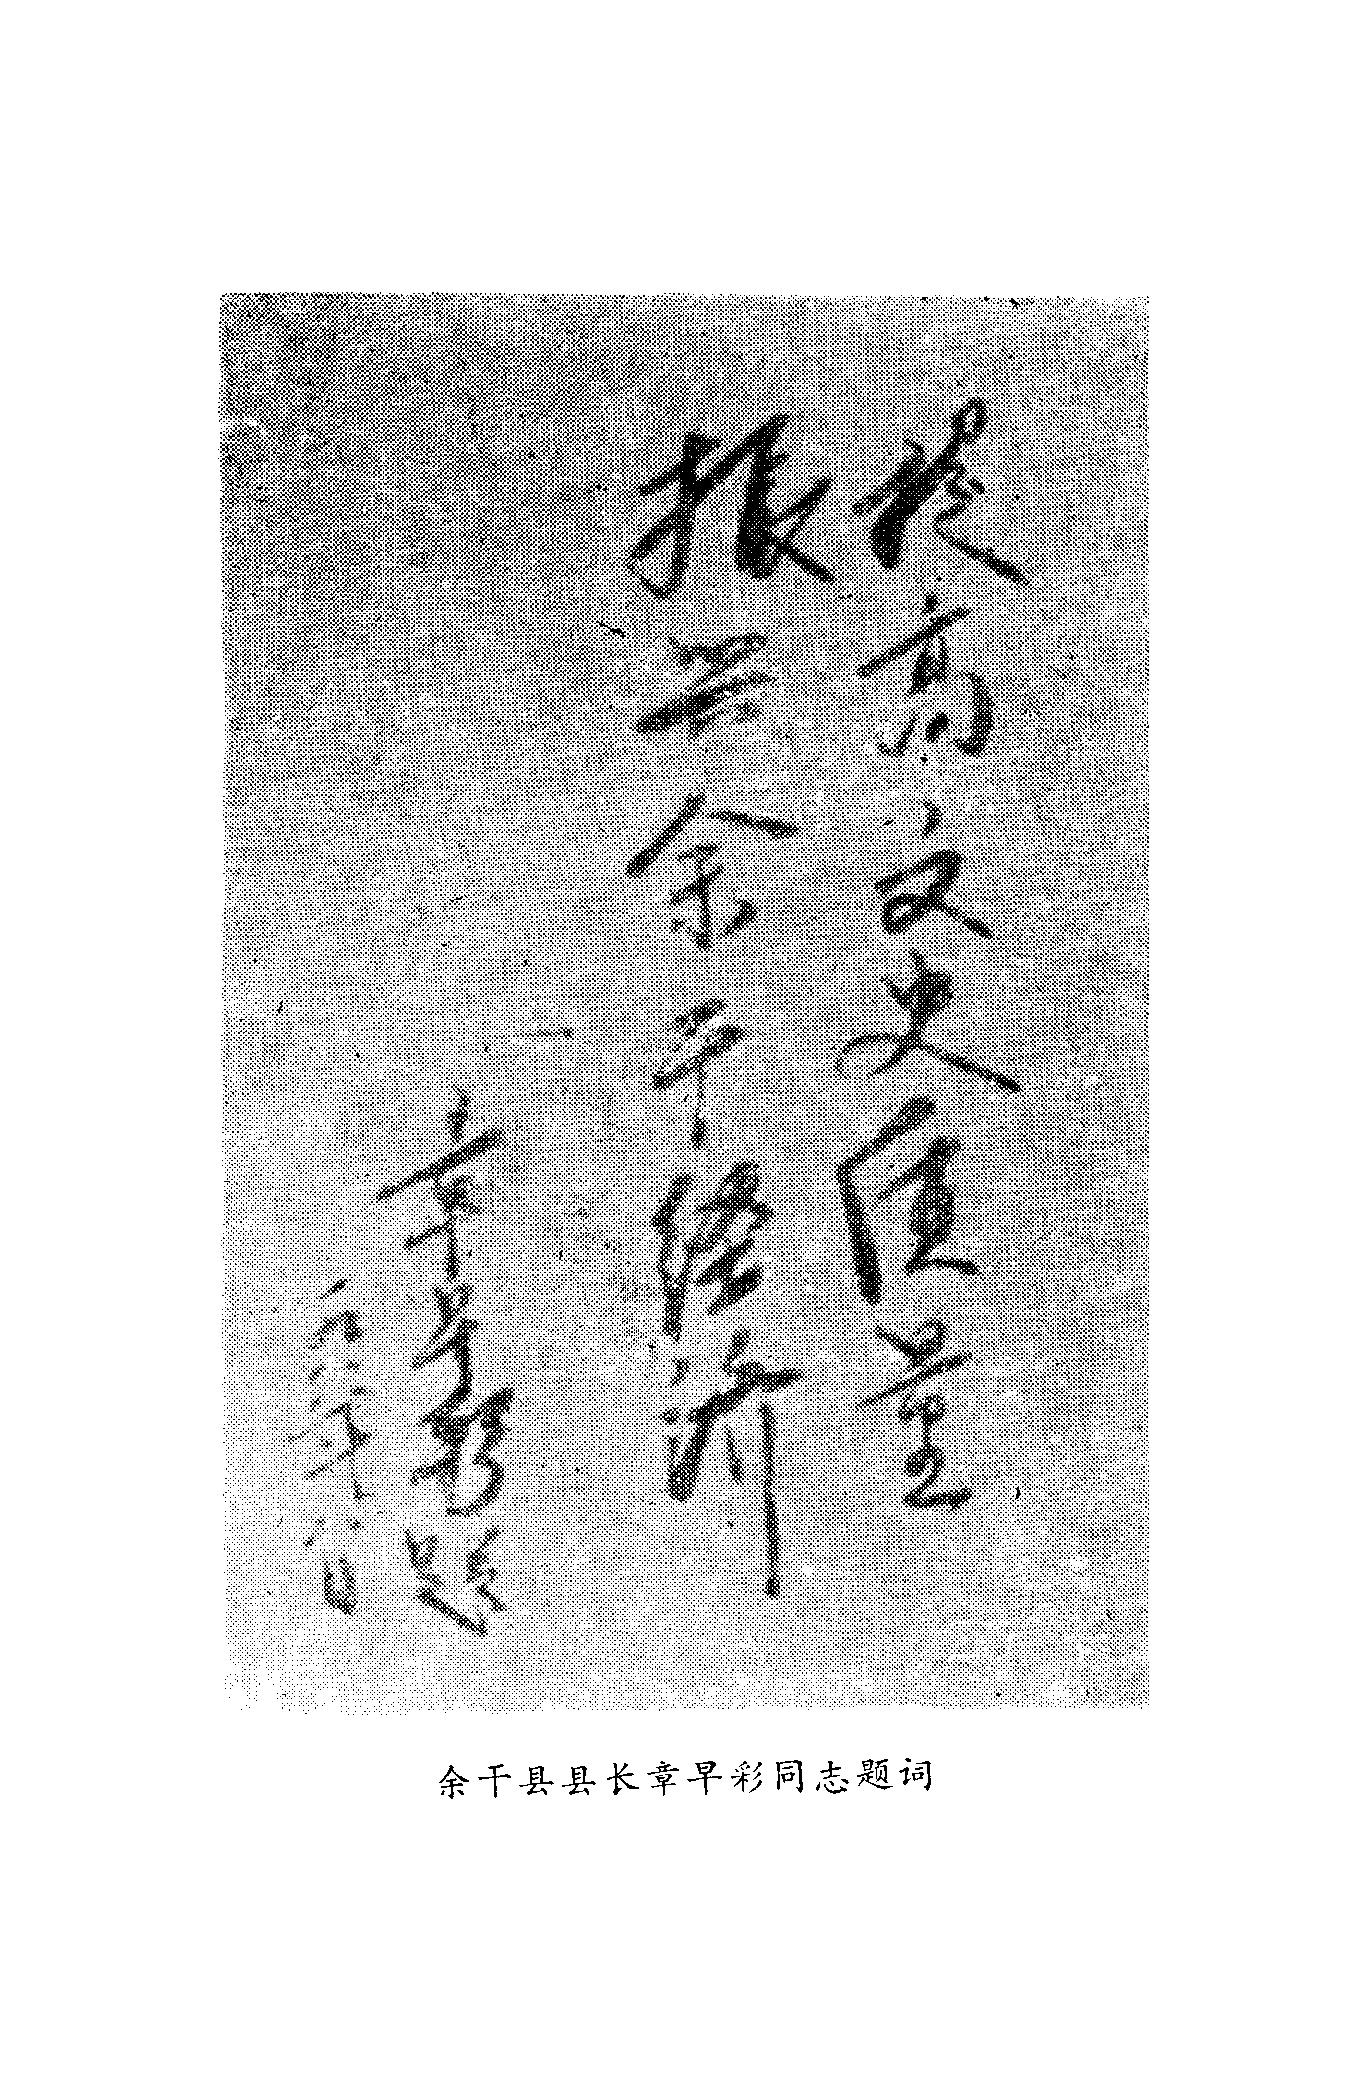 提高文史质量
振兴余干经济
章早彩题
余干县县长章早彩同志题词